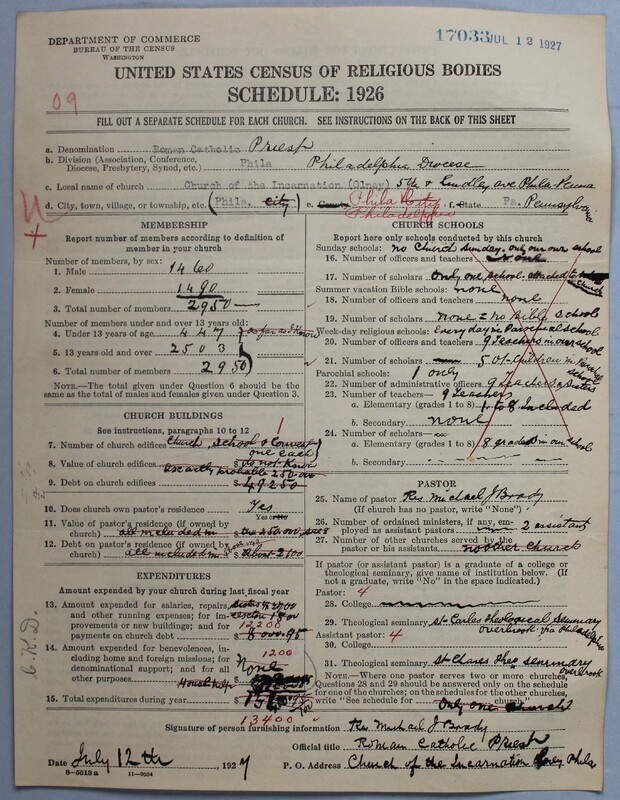 DEPARTMENT OF COMMERCE
BUREAU OF THE CENSUS
WASHINGTON
17033 JUL 12 1927
UNITED STATES CENSUS OF RELIGIOUS BODIES
SCHEDULE: 1926
09
FILL OUT A SEPARATE SCHEDULE FOR EACH CHURCH. SEE INSTRUCTIONS ON THE BACK OF THIS SHEET
a. Denomination Roman Catholic Priest
b. Division (Association, Conference, Diocese, Presbytery, Synod, etc.) Phila Philadelphia Diocese
c. Local name of church Church of the Incarnation (Olney) 5th & Lindley ave Phila Penna
d. City, town, village, or township, etc. (Phila. City) e. County Phila City Philadelphia f. State Pa. Pennsylvania
MEMBERSHIP
Report number of members according to definition of member in your church
Number of members, by sex:
1. Male 1460
2. Female 1490
3. Total number of members 2950
Number of members under and over 13 years old:
4. Under 13 years of age 447 as far as I know
5. 13 years old and over 2503
6. Total number of members 2950
NOTE.—The total given under Question 6 should be the same as the total of males and females given under Question 3.
CHURCH BUILDINGS
See instructions, paragraphs 10 to 12
7. Number of church edifices Church, School & Convent one each 1
8. Value of church edifices $ do not know exactly probable 250.000
9. Debt on church edifices $ 49250
10. Does church own pastor's residence? Yes
Yes or No
11. Value of pastor's residence (if owned by church) all included in the 250.000
12. Debt on pastor's residence (if owned by church) all included in $ about 2100
EXPENDITURES
Amount expended by your church during last fiscal year
13. Amount expended for salaries, repairs, and other running expenses; for improvements or new buildings; and for payments on church debt 12200
14. Amount expended for benevolences, including home and foreign missions; for denominational support; and for all other purposes None 1200
15. Total expenditures during year
13400
CHURCH SCHOOLS
Report only schools conducted by this church
Sunday schools: no Church Sunday. only our own school
16. Number of officers and teachers none
17. Number of scholars Only one school attached to church
Summer vacation Bible schools: none
18. Number of officers and teachers none
19. Number of scholars None = no Bible schools
Week-day religious schools: Everyday in Parochial school
20. Number of officers and teachers 9 Teachers in our school
21. Number of scholars 501 children in Parochial school
Parochial schools: 1 only
22. Number of administrative officers 9 Teachers, Sisters
23. Number of teachers— 9 Teachers
a. Elementary (grades 1 to 8) 1 to 8 Included
b. Secondary none
24. Number of scholars—
a. Elementary (grades 1 to 8) 8 grades in our school
b. Secondary
PASTOR
25. Name of pastor Rev Michael J Brady
(If church has no pastor, write "None")
26. Number of ordained ministers, if any, employed as assistant pastors 2 assistant
27. Number of other churches served by the pastor or his assistants no other church
If pastor (or assistant pastor) is a graduate of a college or theological seminary, give name of institution below. (If not a graduate, write "No" in the space indicated.)
Pastor: 4
28. College
29. Theological seminary St Carles Theological Seminary Overbrook via Philadelphia
Assistant pastor: 4
30. College
31. Theological seminary St Charles Theo seminary Overbrook
NOTE.—Where one pastor serves two or more churches, Questions 28 and 29 should be answered only on the schedule for one of the churches; on the schedules for the other churches, write "See schedule for Only one church"
Signature of person furnishing information Rev Michael J Brady
Official title Roman Catholic Priest
Date July 12th, 1927
P. O. Address Church of the Incarnation Olney Phila
8—5613a 11—9554
C.K.D.